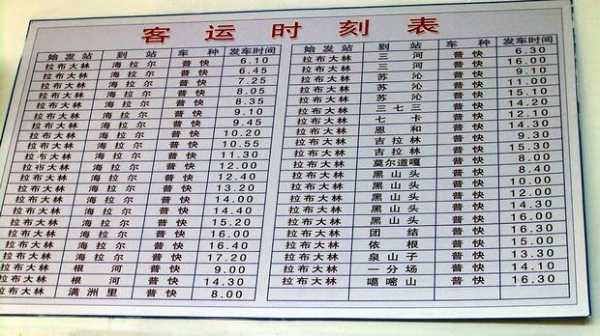 客运时刻表
始发站 到站 车种 发车时间
拉布大林 海拉尔 普快 6.10
拉布大林 海拉尔 普快 6.45
拉布大林 海拉尔 普快 7.25
拉布大林 海拉尔 普快 8.05
拉布大林 海拉尔 普快 8.35
拉布大林 海拉尔 普快 9.10
拉布大林 海拉尔 普快 9.45
拉布大林 海拉尔 普快 10.20
拉布大林 海拉尔 普快 10.55
拉布大林 海拉尔 普快 11.30
拉布大林 海拉尔 普快 12.00
拉布大林 海拉尔 普快 12.40
拉布大林 海拉尔 普快 13.20
拉布大林 海拉尔 普快 14.00
拉布大林 海拉尔 普快 14.40
拉布大林 海拉尔 普快 15.20
拉布大林 海拉尔 普快 16.00
拉布大林 海拉尔 普快 16.40
拉布大林 海拉尔 普快 17.20
拉布大林 根河 普快 9.00
拉布大林 根河 普快 14.30
拉布大林 满洲里 普快 8.00
始发站 到站 车种 发车时间
拉布大林 三河 普快 6.30
拉布大林 三河 普快 16.00
拉布大林 苏沁 普快 9.10
拉布大林 苏沁 普快 11.00
拉布大林 苏沁 普快 15.10
拉布大林 三七三 普快 14.20
拉布大林 七卡 普快 12.10
拉布大林 恩和 普快 14.30
拉布大林 吉拉林 普快 9.30
拉布大林 吉拉林 普快 15.30
拉布大林 莫尔道嘎 普快 8.00
拉布大林 黑山头 普快 8.40
拉布大林 黑山头 普快 10.00
拉布大林 黑山头 普快 12.00
拉布大林 黑山头 普快 14.30
拉布大林 黑山头 普快 16.00
拉布大林 团结 普快 16.00
拉布大林 依根 普快 13.30
拉布大林 泉山子 普快 13.30
拉布大林 一分场 普快 14.10
拉布大林 山 普快 16.30